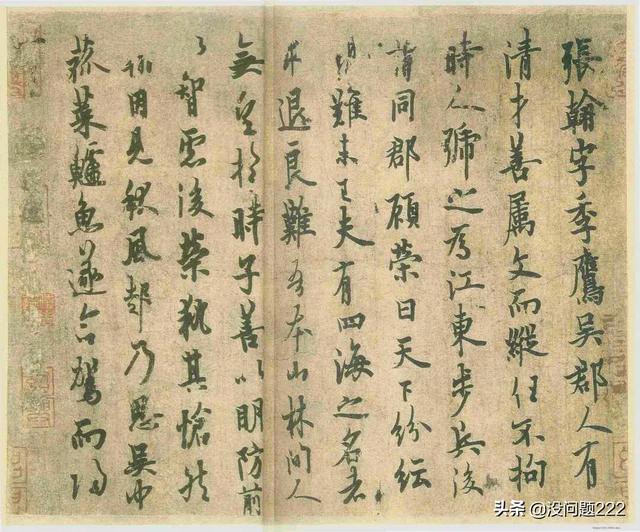 張翰字季鷹吳郡人有
清才善屬文而縱任不拘
時人號之為江東步兵後
謂同郡顧榮曰天下紛紜
禍難未已夫有四海之名者
求退良難吾本山林間人
無望於時子善以明防前
以智慮後榮執其愴然
翰因見秋風起乃思吳中
菰菜鱸魚遂命駕而歸
头条 @没问题222